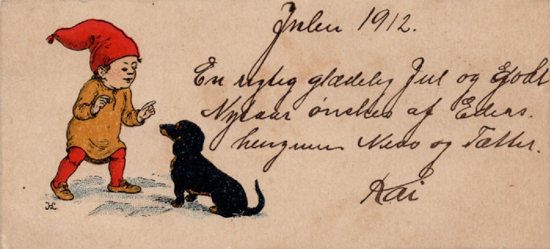 Julen 1912.
En rigtig glædelig Jul og Godt
Nytaar ønskes af Eders
hengivne Nevø og Fætter.
Kai